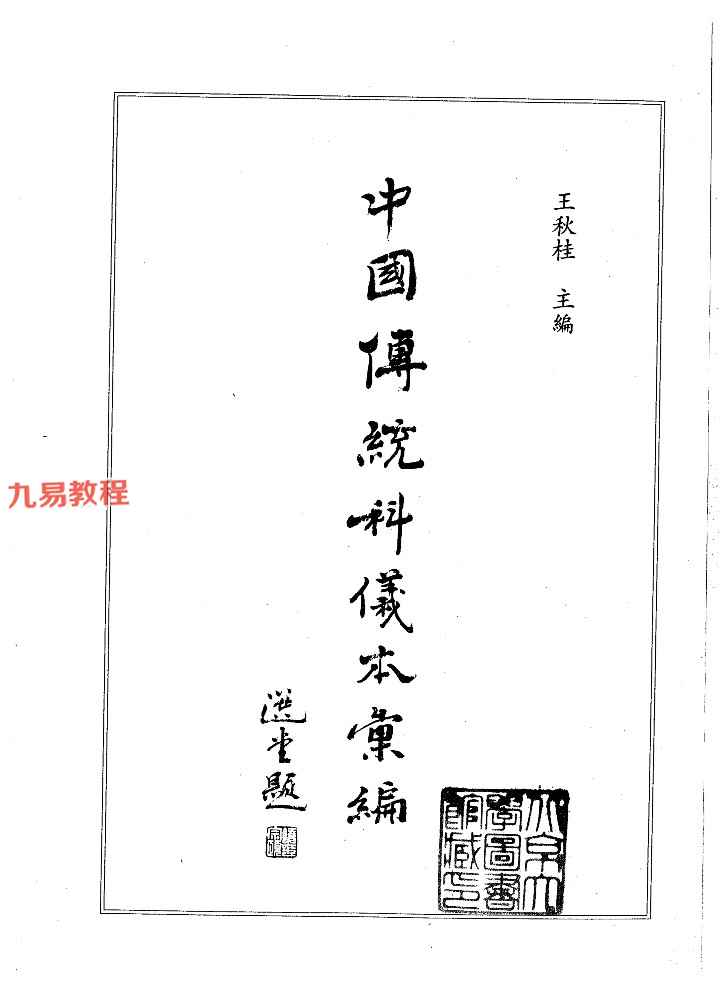 王秋桂 主編
中國傳統科儀本彙編
選堂題
北京大
學圖書
館藏印
九易教程